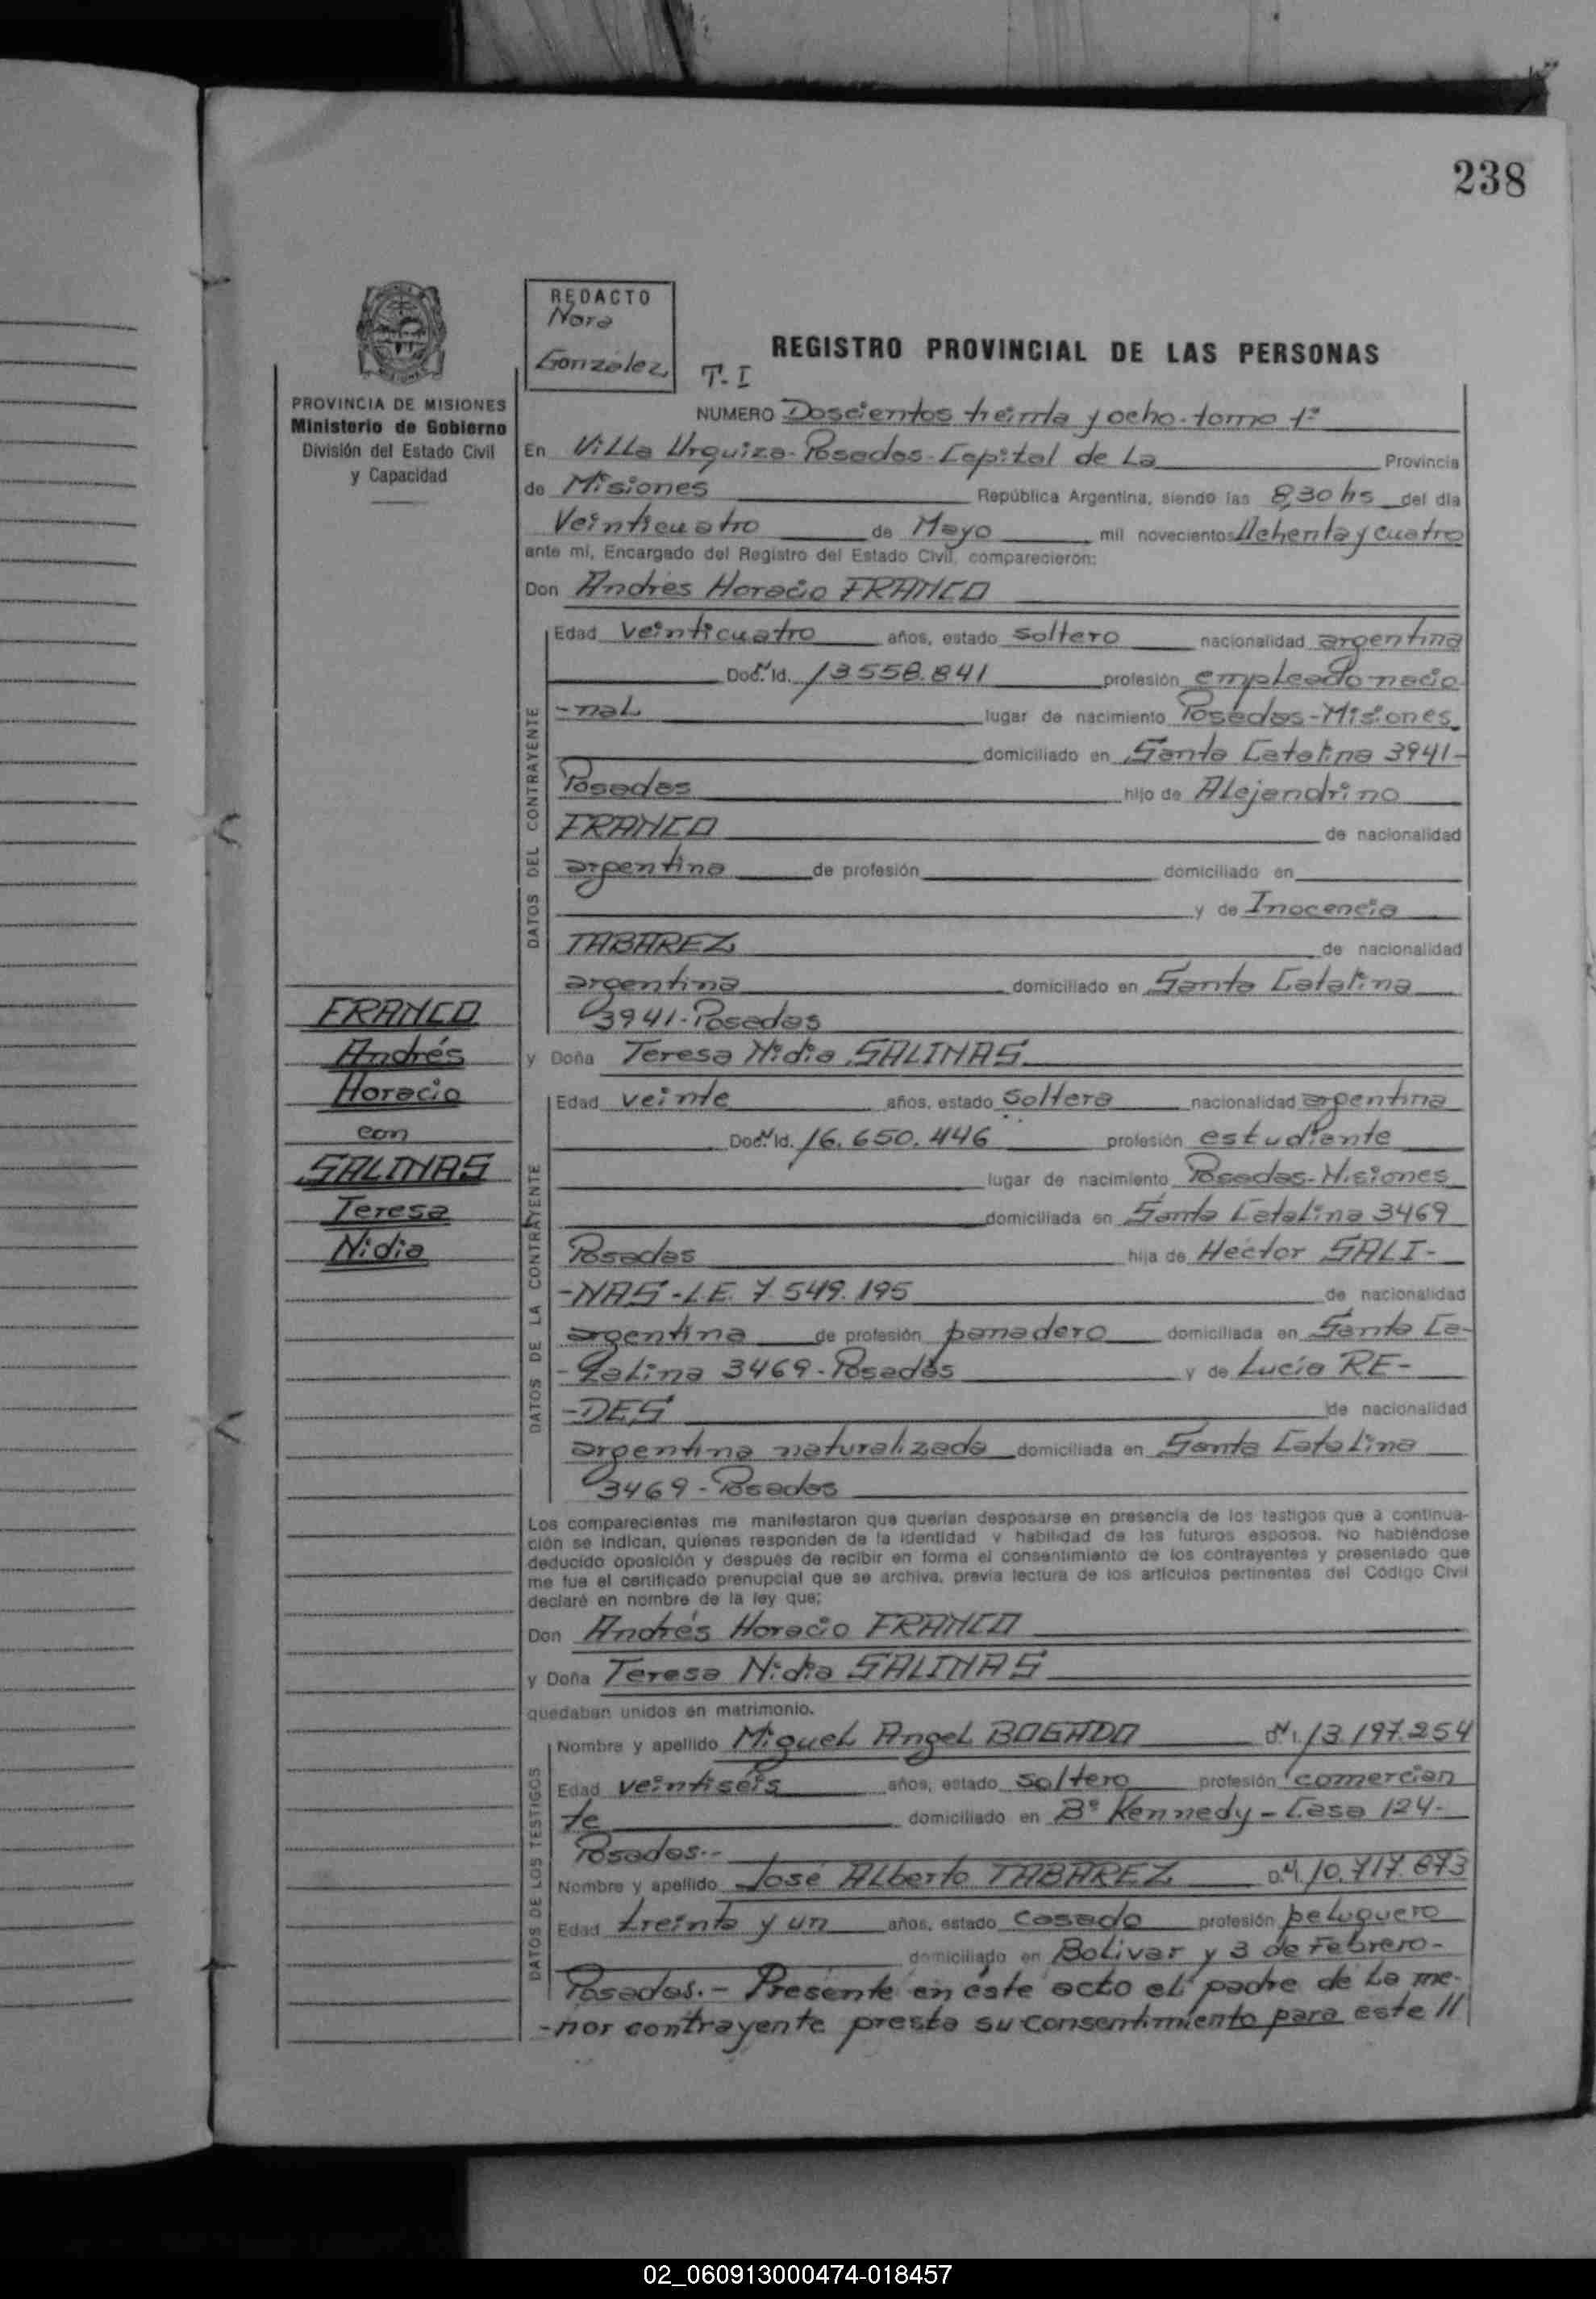 238
REDACTO
Nora
Gonzalez
T. I
REGISTRO PROVINCIAL DE LAS PERSONAS
PROVINCIA DE MISIONES
Ministerio de Gobierno
División del Estado Civil
y Capacidad
NUMERO Doscientos treinta y ocho. tomo 1º
En Villa Urquiza-Posadas-Capital de La Provincia
de Misiones República Argentina, siendo las 8,30 hs del día
Veinticuatro de Mayo mil novecientos Ochenta y cuatro
ante mí, Encargado del Registro del Estado Civil, comparecieron:
Don Andrés Horacio FRANCO
DATOS DEL CONTRAYENTE
Edad veinticuatro años, estado soltero nacionalidad argentina
Doc. Id. 13.558.841 profesión empleado nacio
-nal lugar de nacimiento Posadas-Misiones
domiciliado en Santa Catalina 3941-
Posadas hijo de Alejandrino
FRANCO de nacionalidad
argentina de profesión domiciliado en
y de Inocencia
TABAREZ de nacionalidad
argentina domiciliado en Santa Catalina
3941-Posadas
FRANCO
Andrés
Horacio
con
SALINAS
Teresa
Nidia
y Doña Teresa Nidia SALINAS
DATOS DE LA CONTRAYENTE
Edad veinte años, estado soltera nacionalidad argentina
Doc. Id. 16.650.446 profesión estudiante
lugar de nacimiento Posadas-Misiones
domiciliada en Santa Catalina 3469
Posadas hija de Héctor SALI-
-NAS-L.E. 7.549.195 de nacionalidad
argentina de profesión panadero domiciliada en Santa Ca-
-talina 3469-Posadas y de Lucía RE-
-DES de nacionalidad
argentina naturalizada domiciliada en Santa Catalina
3469-Posadas
Los comparecientes me manifestaron que querían desposarse en presencia de los testigos que a continua-
ción se indican, quienes responden de la identidad y habilidad de los futuros esposos. No habiéndose
deducido oposición y después de recibir en forma el consentimiento de los contrayentes y presentado que
me fue el certificado prenupcial que se archiva, previa lectura de los artículos pertinentes del Código Civil
declaré en nombre de la ley que:
Don Andrés Horacio FRANCO
y Doña Teresa Nidia SALINAS
quedaban unidos en matrimonio.
DATOS DE LOS TESTIGOS
Nombre y apellido Miguel Angel BOGADO D.N.I. 13.197.254
Edad veintiséis años, estado soltero profesión comercian
te domiciliado en Bº Kennedy-Casa 124-
Posadas.-
Nombre y apellido José Alberto TABAREZ D.N.I. 10.717.873
Edad treinta y un años, estado casado profesión peluquero
domiciliado en Bolivar y 3 de Febrero-
Posadas.- Presente en éste acto el padre de la me-
-nor contrayente presta su consentimiento para este //
02_060913000474-018457